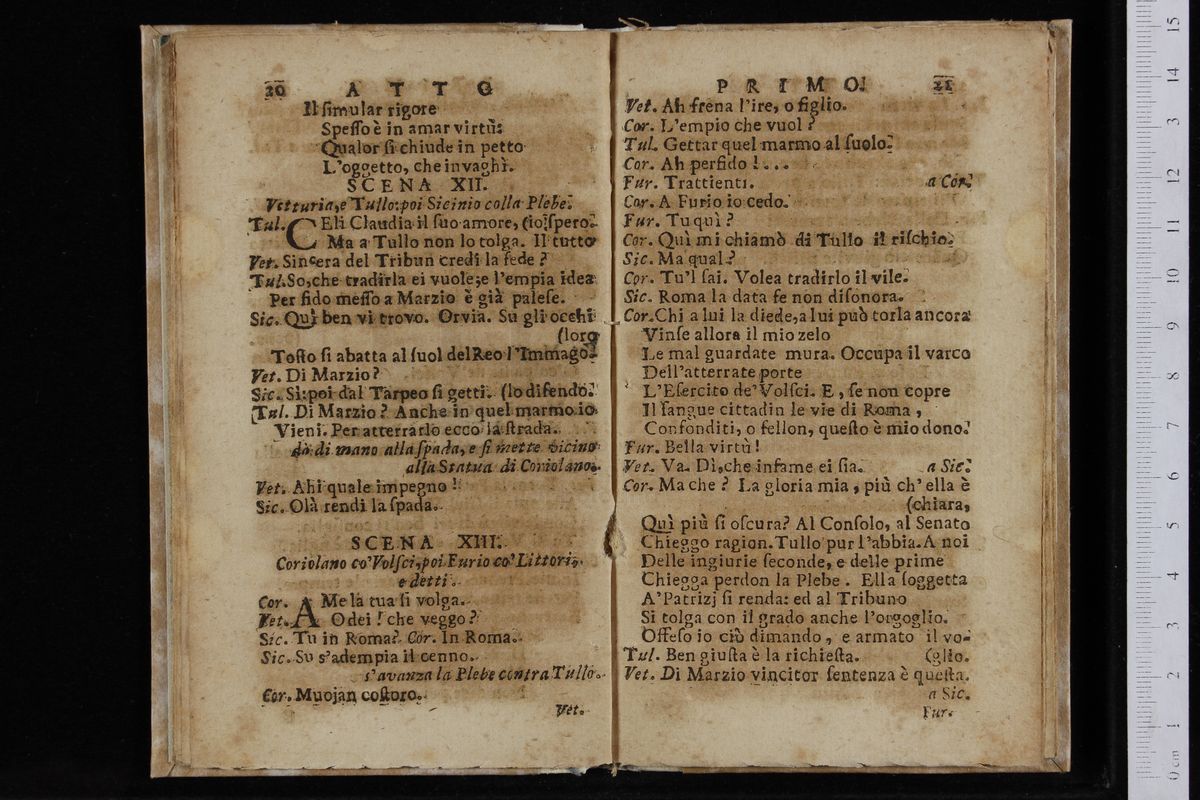 20 ATTO
Il ſimular rigore
Speſſo è in amar virtù:
Qualor ſi chiude in petto
L'oggetto, che invaghì.
SCENA XII.
Vetturia, e Tullo: poi Sicinio colla Plebe.
Tul. CEli Claudia il ſuo amore, (io ſpero.
Ma a Tullo non lo tolga. Il tutto
Vet. Sincera del Tribun credi la fede?
Tul. So, che tradirla ei vuole; e l'empia idea
Per fido meſſo a Marzio è già paleſe.
Sic. Quì ben vi trovo. Orvia. Su gli occhi
(loro
Toſto ſi abatta al ſuol del Reo l'Immago.
Vet. Di Marzio?
Sic. Si: poi dal Tarpeo ſi getti. (lo difendo.
Tul. Di Marzio? Anche in quel marmo io
Vieni. Per atterrarlo ecco la ſtrada.
dà di mano alla ſpada, e ſi mette vicino
alla Statua di Coriolano.
Vet. Ahi quale impegno!
Sic. Olà rendi la ſpada.
SCENA XIII.
Coriolano co' Volſci, poi Furio co' Littori,
e detti.
Cor. A Me là tua ſi volga.
Vet. O dei! che veggo?
Sic. Tu in Roma? Cor. In Roma.
Sic. Su s'adempia il cenno.
s'avanza la Plebe contra Tullo.
Cor. Muojan coſtoro.
Vet.
PRIMO. 21
Vet. Ah frena l'ire, o figlio.
Cor. L'empio che vuol?
Tul. Gettar quel marmo al ſuolo.
Cor. Ah perfido!...
Fur. Trattienti. a Cor.
Cor. A Furio io cedo.
Fur. Tu quì?
Cor. Quì mi chiamò di Tullo il riſchio.
Sic. Ma qual?
Cor. Tu'l ſai. Volea tradirlo il vile.
Sic. Roma la data fe non diſonora.
Cor. Chi a lui la diede, a lui può torla ancora
Vinſe allora il mio zelo
Le mal guardate mura. Occupa il varco
Dell'atterrate porte
L'Eſercito de' Volſci. E, ſe non copre
Il ſangue cittadin le vie di Roma,
Confonditi, o fellon, queſto è mio dono.
Fur. Bella virtù!
Vet. Va. Di, che infame ei ſia. a Sic.
Cor. Ma che? La gloria mia, più ch' ella è
(chiara,
Quì più ſi oſcura? Al Conſolo, al Senato
Chieggo ragion. Tullo pur l'abbia. A noi
Delle ingiurie ſeconde, e delle prime
Chiegga perdon la Plebe. Ella ſoggetta
A' Patrizj ſi renda: ed al Tribuno
Si tolga con il grado anche l'orgoglio.
Offeſo io ciò dimando, e armato il vo-
Tul. Ben giuſta è la richieſta. (glio.
Vet. Di Marzio vincitor ſentenza è queſta.
a Sic.
Fur.
15
14
13
12
11
10
9
8
7
6
5
4
3
2
1
0 cm